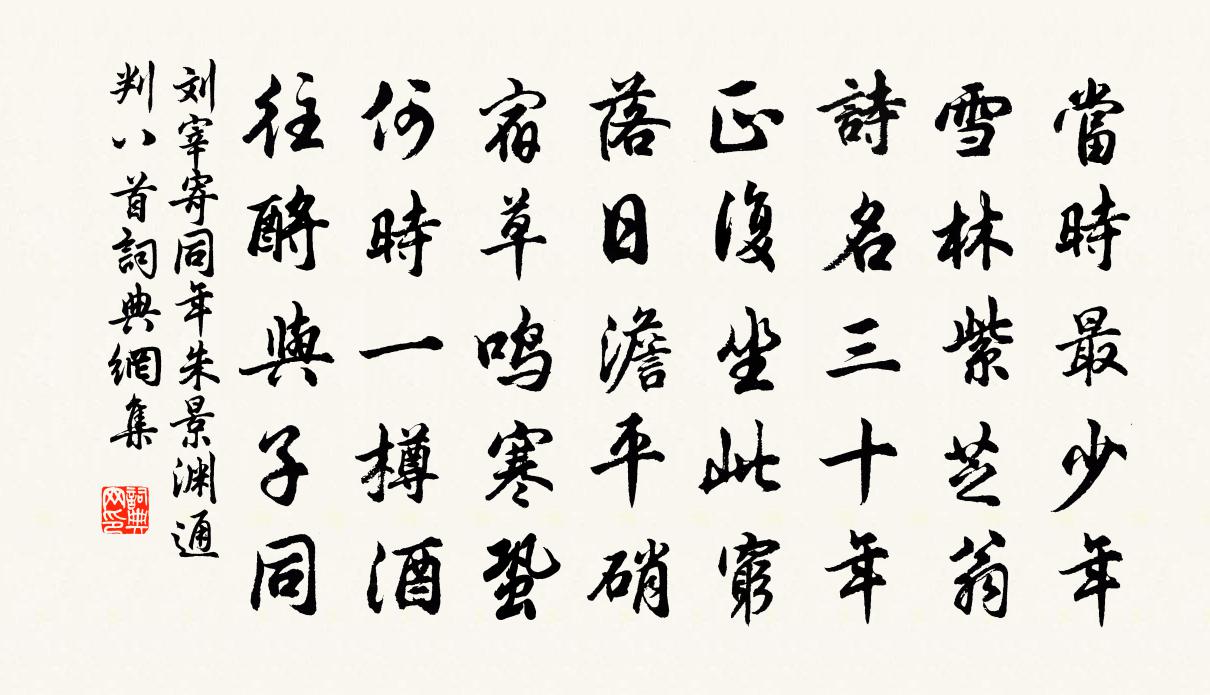 當時最少年
雪林紫芝翁
詩名三十年
正復坐此窮
落日澹平硝
宿草鳴寒蛩
何時一樽酒
往酹與子同
刘宰寄同年朱景渊通
判八首詞典網集
詞典网印